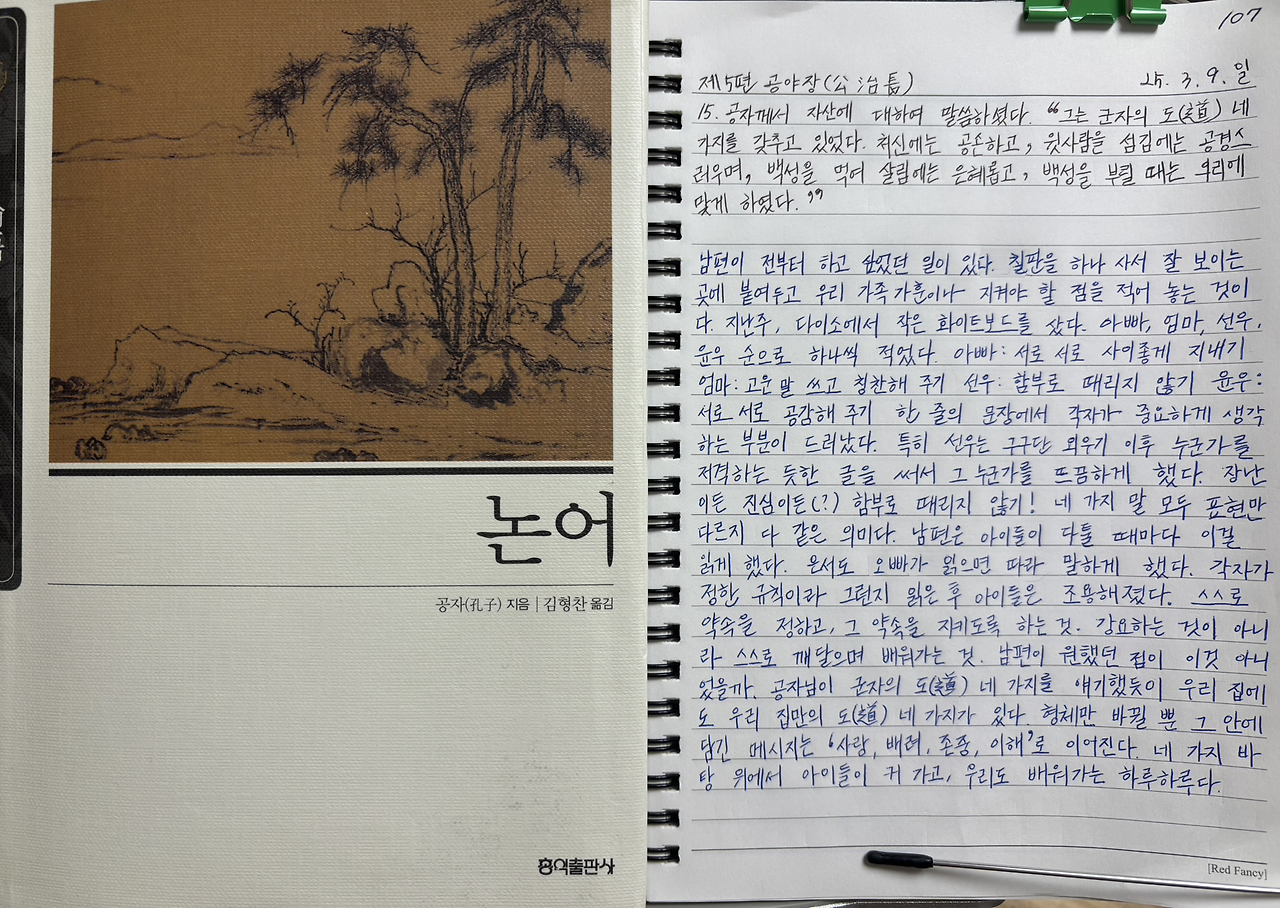 논어
공자(孔子) 지음 | 김형찬 옮김
홍익출판사
107
제5편 공야장(公冶長) 25. 3. 9. 일
15. 공자께서 자산에 대하여 말씀하셨다. "그는 군자의 도(道) 네
가지를 갖추고 있었다. 처신에는 공손하고, 윗사람을 섬김에는 공경스
러우며, 백성을 먹여 살림에는 은혜롭고, 백성을 부릴 때는 의리에
맞게 하였다."
남편이 전부터 하고 싶었던 일이 있다. 칠판을 하나 사서 잘 보이는
곳에 붙여두고 우리 가족 가훈이나 지켜야 할 점을 적어 놓는 것이
다. 지난주, 다이소에서 작은 화이트보드를 샀다. 아빠, 엄마, 선우,
윤우 순으로 하나씩 적었다. 아빠: 서로 서로 사이좋게 지내기
엄마: 고운 말 쓰고 칭찬해 주기 선우: 함부로 때리지 않기 윤우:
서로 서로 공감해 주기 한 줄의 문장에서 각자가 중요하게 생각
하는 부분이 드러났다. 특히 선우는 구구단 외우기 이후 누군가를
저격하는 듯한 글을 써서 그 누군가를 뜨끔하게 했다. 장난
이든 진심이든(?) 함부로 때리지 않기! 네 가지 말 모두 표현만
다르지 다 같은 의미다. 남편은 아이들이 다툴 때마다 이걸
읽게 했다. 은서도 오빠가 읽으면 따라 말하게 했다. 각자가
정한 규칙이라 그런지 읽은 후 아이들은 조용해졌다. 스스로
약속을 정하고, 그 약속을 지키도록 하는 것. 강요하는 것이 아니
라 스스로 깨달으며 배워가는 것. 남편이 원했던 점이 이것 아니
었을까. 공자님이 군자의 도(道) 네 가지를 얘기했듯이 우리 집에
도 우리 집만의 도(道) 네 가지가 있다. 형체만 바뀔 뿐 그 안에
담긴 메시지는 '사랑, 배려, 존중, 이해'로 이어진다. 네 가지 바
탕 위에서 아이들이 커 가고, 우리도 배워가는 하루하루다.
[Red Fancy]